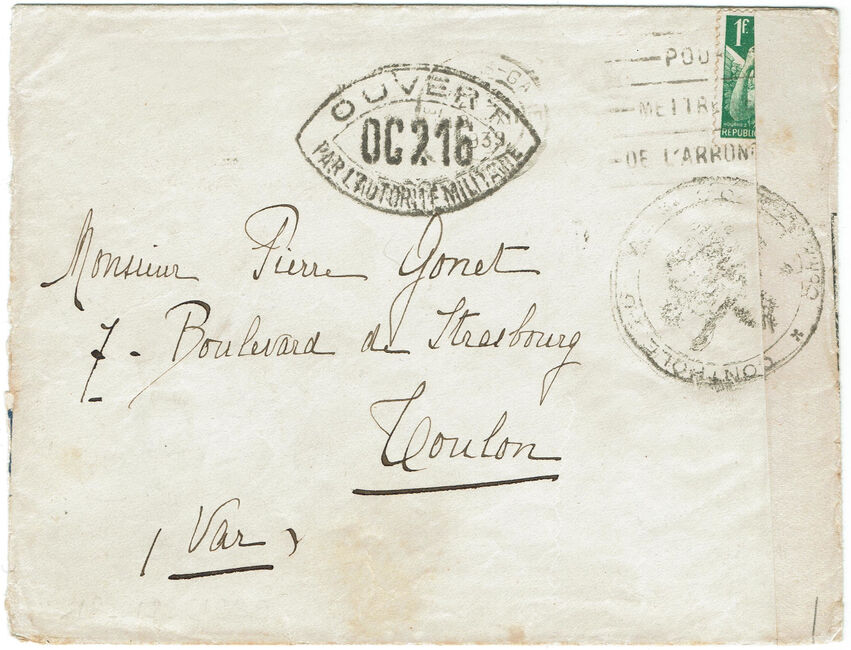 1F
POU
METTRE
DE L'ARRON
RÉPUBLIQ
OUVERT
OC 216
PAR L'AUTORITÉ MILITAIRE
39
CONTROLE
Monsieur Pierre Gonet
7 - Boulevard de Strasbourg
Toulon
(Var)